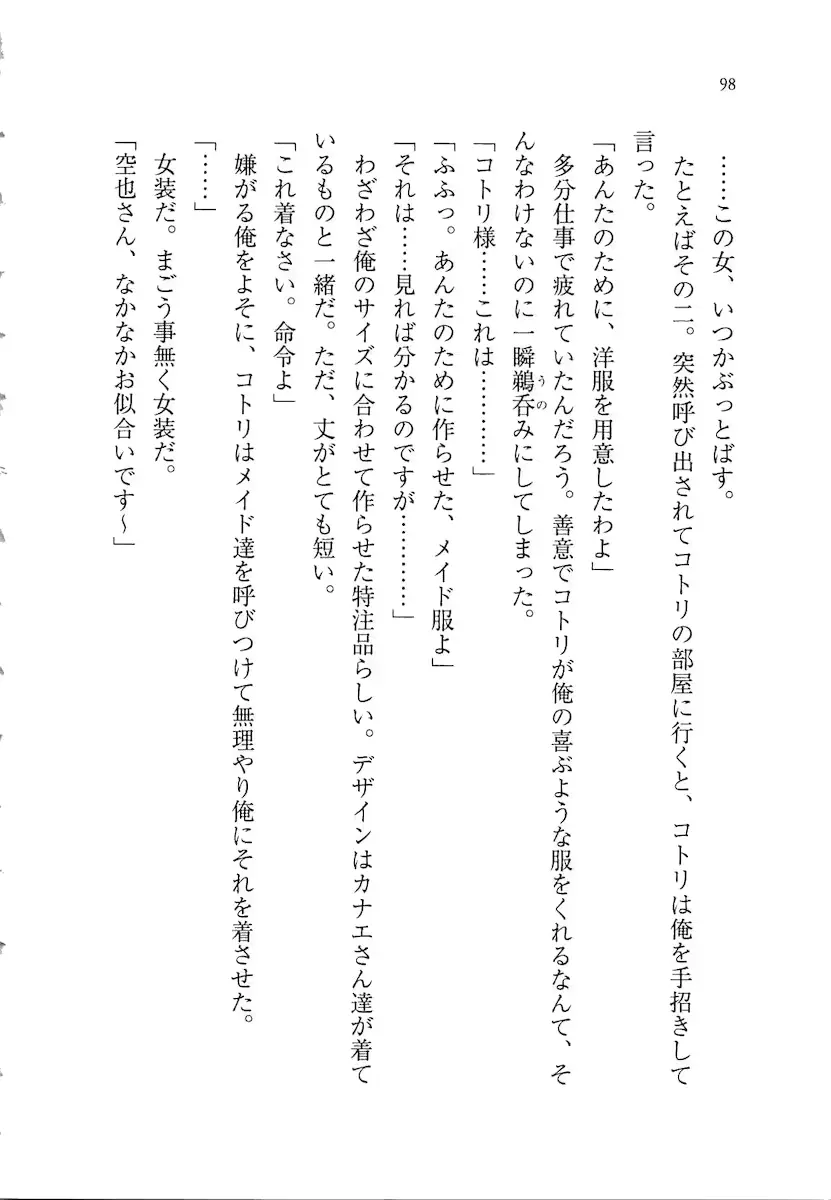 98
……この女、いつかぶっとばす。
たとえばその二。突然呼び出されてコトリの部屋に行くと、コトリは俺を手招きして
言った。
「あんたのために、洋服を用意したわよ」
多分仕事で疲れていたんだろう。善意でコトリが俺の喜ぶような服をくれるなんて、そ
んなわけないのに一瞬鵜呑みにしてしまった。
「コトリ様……これは…………」
「ふふっ。あんたのために作らせた、メイド服よ」
「それは……見れば分かるのですが…………」
わざわざ俺のサイズに合わせて作らせた特注品らしい。デザインはカナエさん達が着て
いるものと一緒だ。ただ、丈がとても短い。
「これ着なさい。命令よ」
嫌がる俺をよそに、コトリはメイド達を呼びつけて無理やり俺にそれを着させた。
「……」
女装だ。まごう事無く女装だ。
「空也さん、なかなかお似合いです～」